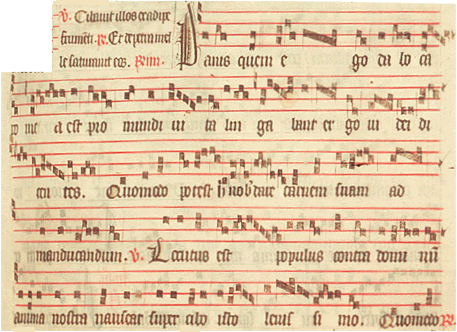 ℣. Cibavit illos ex adipe
frumen. ℟. Et de petra mel
le saturavit eos. ℟
Panis quem e go da bo ca
ro me a est pro mundi vi ta liti ga bant er go iu dei di
cen tes. Quomodo potest hic nob dare carnem suam ad
manducandum. ℣. Locutus est populus contra domi nū
anima nostra nauseat super cibo isto levis si mo. Quomodo ℟.